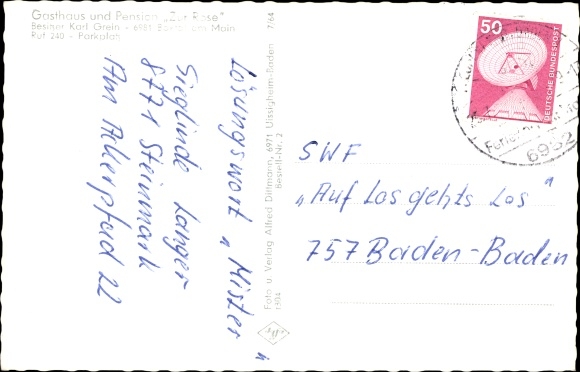 Gasthaus und Pension „Zur Rose"
Besitzer Karl Grein - 6981 am Main
Ruf 240 - Parkplatz
Lösungswort „Mister"
Sieglinde Langer
8771 Steinmark
Am Adlerpfad 22
Foto u. Verlag Alfred Dittmann, 6971 Uissigheim-Baden 7/64
Bestell-Nr. 2
1504
50
DEUTSCHE BUNDESPOST
6982
SWF
„Auf Los gehts Los"
757 Baden-Baden